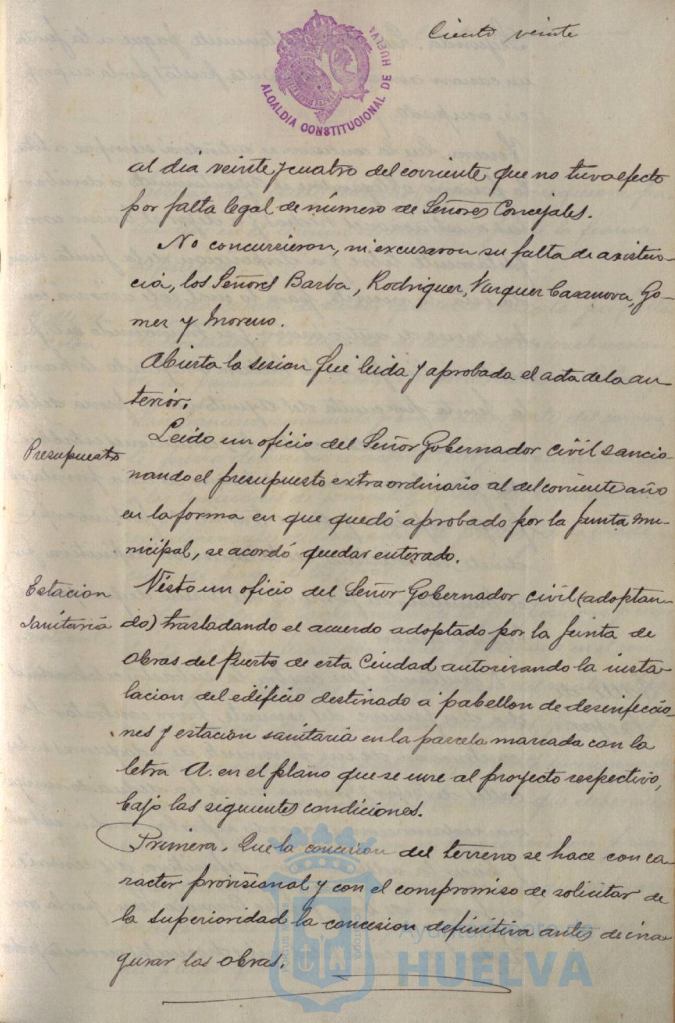 Ciento veinte
ALCALDIA CONSTITUCIONAL DE HUELVA
al dia veinte y cuatro del corriente que no tuvo efecto
por falta legal de número de Señores Concejales.
No concurrieron, ni excusaron su falta de asisten-
cia, los Señores Barba, Rodriguez, Vazquez Casanova, Go-
mez y Moreno.
Abierta la sesion fué leida y aprobada el acta de la an-
terior.
Presupuesto
Leido un oficio del Señor Gobernador civil sancio-
nando el presupuesto extraordinario al del corriente año
en la forma en que quedó aprobado por la Junta mu-
nicipal, se acordó quedar enterado.
Estacion
Sanitaria
Visto un oficio del Señor Gobernador civil (adoptan-
do) trasladando el acuerdo adoptado por la Junta de
Obras del Puerto de esta Ciudad autorizando la insta-
lacion del edificio destinado a pabellon de desinfeccio-
nes y estacion sanitaria en la parcela marcada con la
letra A. en el plano que se une al proyecto respectivo,
bajo las siguientes condiciones.
Primera. Que la concesion del terreno se hace con ca-
racter provisional y con el compromiso de solicitar de
la superioridad la concesion definitiva antes de ina-
gurar las obras.
Ayuntamiento de
HUELVA